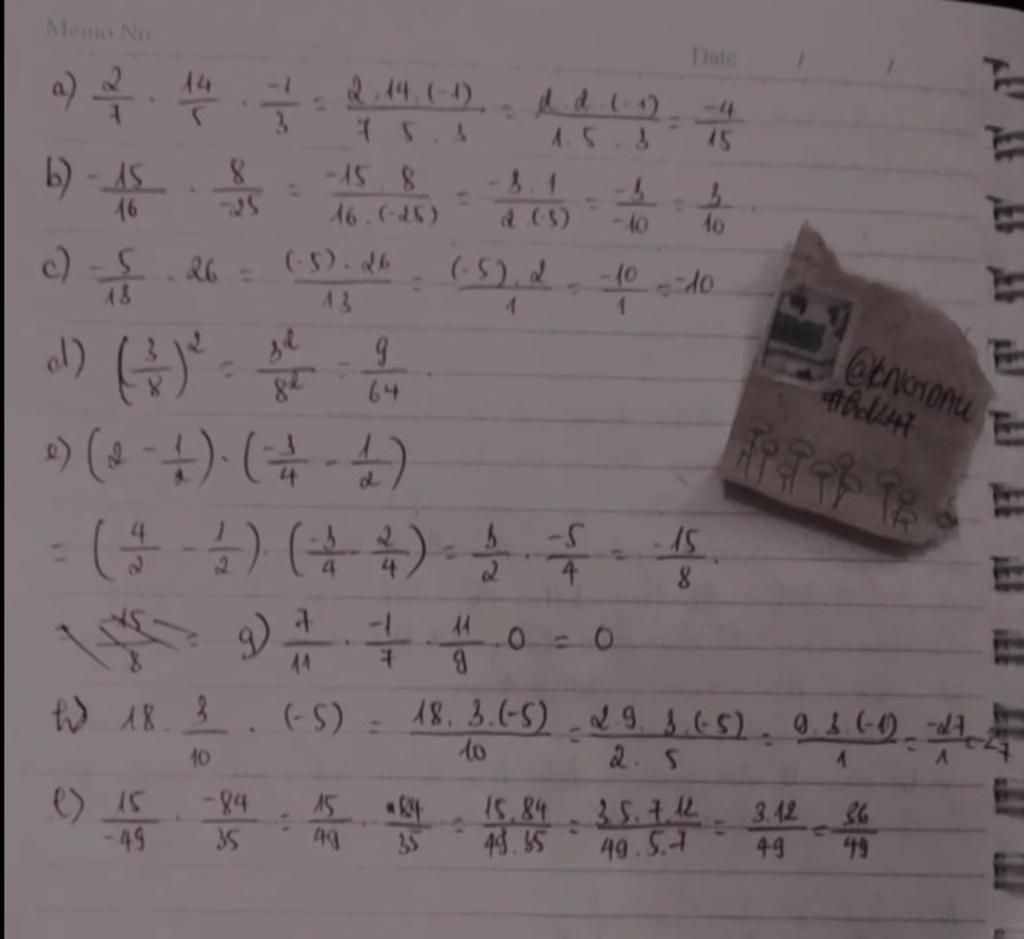 Memo No.
Date / /
a) 2/7 . 14/5 . -1/3 = 2.14.(-1)/7 5 . 3 = 2.2.(-1)/1.5.3 = -4/15
b) -15/16 . 8/-25 = -15.8/16.(-25) = -3.1/2.(-5) = -3/-10 = 3/10.
c) -5/13 . 26 = (-5).26/13 = (-5).2/1 = -10/1 = -10
d) (3/8)² = 3²/8² = 9/64.
e) (2 - 1/2).(-3/4 - 1/2)
= (4/2 - 1/2).(-3/4 - 2/4) = 3/2 . -5/4 = -15/8.
g) 7/11 . -1/7 . 11/9 . 0 = 0
h) 18 . 3/10 . (-5) = 18.3.(-5)/10 = 2.9.3.(-5)/2.5 = 9.3.(-1)/1 = -27/1 = -27
l) 15/-49 . -84/35 = 15/49 . 84/35 = 15.84/49.35 = 3.5.7.12/49.5.7 = 3.12/49 = 36/49